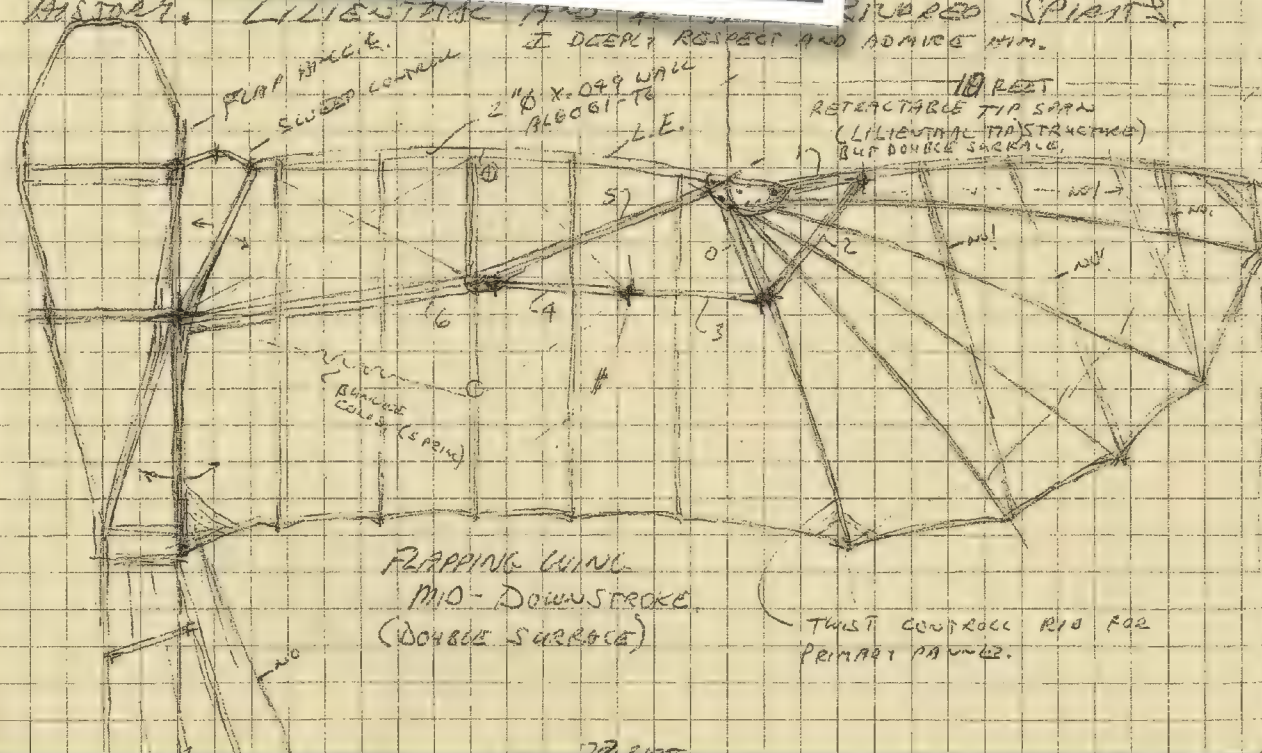 HISTORY. LILIENTHAL AND KINDRED SPIRITS.
I DEEPLY RESPECT AND ADMIRE HIM.
FLAP HINGE.
SWEEP CONTROL
2"Ø X .049 WALL
AL6061-T6
L.E.
10 FEET
RETRACTABLE TIP SPAN
(LILIENTHAL TIP STRUCTURE)
BUT DOUBLE SURFACE.
1
5
NO!
NO!
0
2
NO!
NO!
6
4
3
BUNGEE
(SPRING)
FLAPPING WING
MID-DOWNSTROKE
(DOUBLE SURFACE)
TWIST CONTROLL RIB FOR
PRIMARY
NO